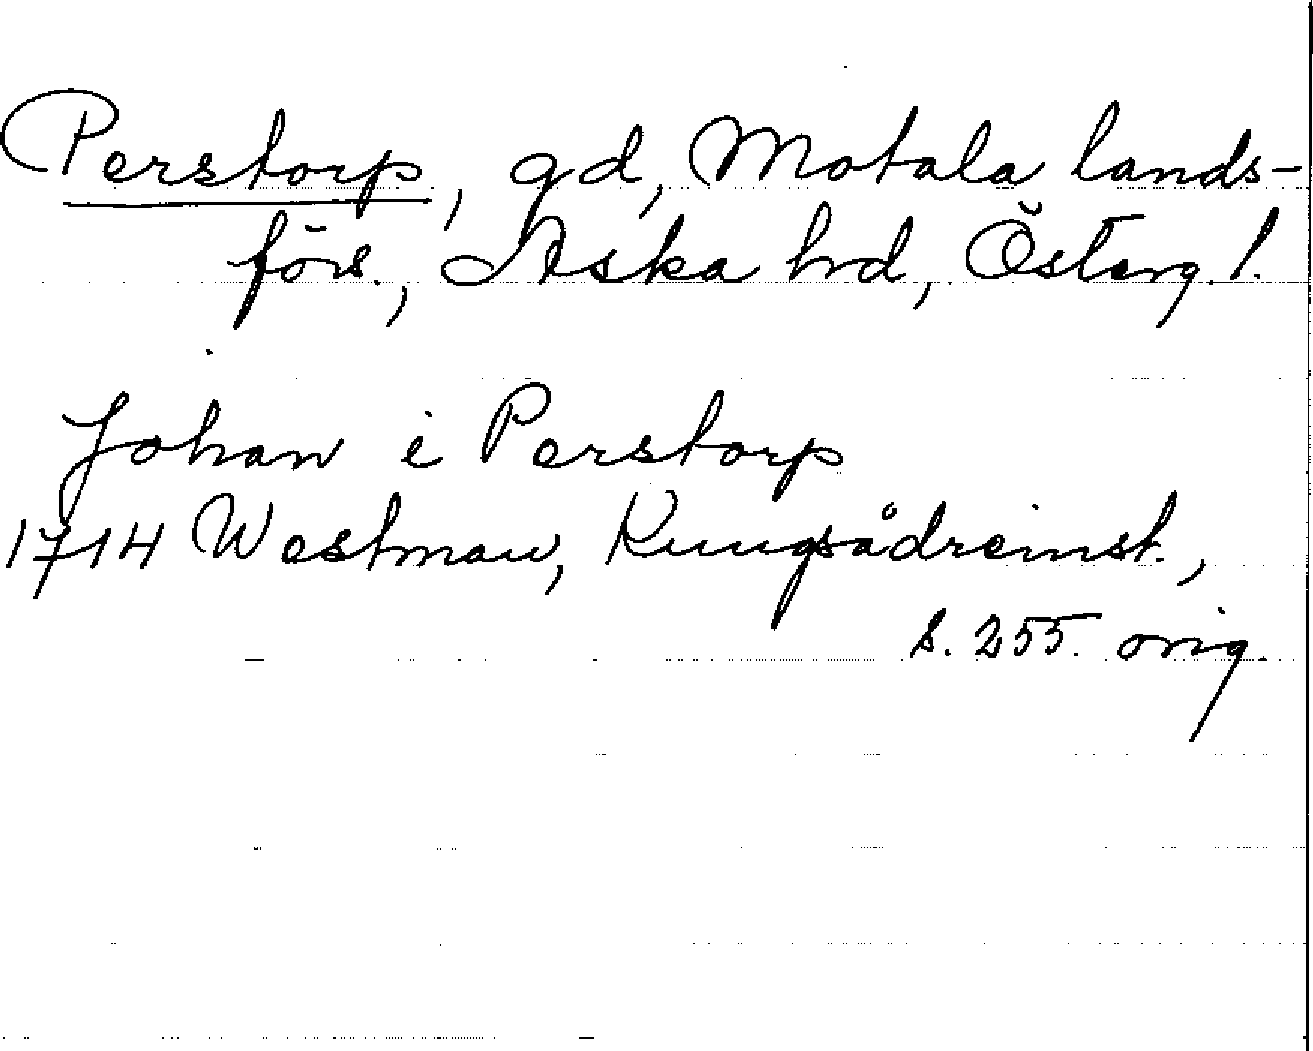 Perstorp, gd, Motala lands-
förs., Aska hd, Österg. l.
Johan i Perstorp
1714 Westman, Kungsådreinst.,
s. 255. orig.